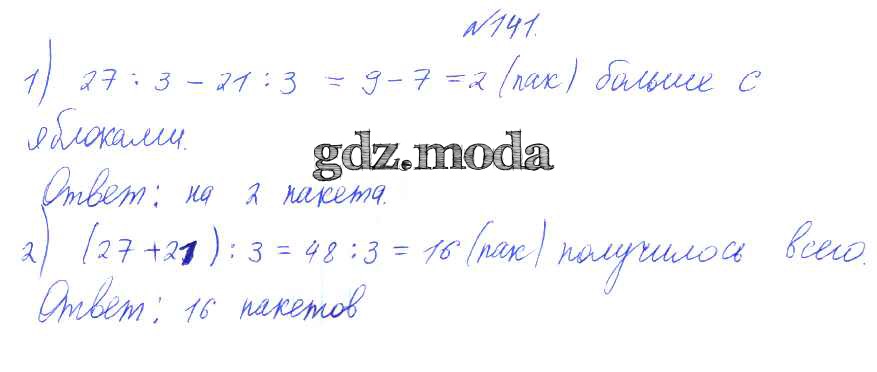 №141.
1) 27 : 3 - 21 : 3 = 9 - 7 = 2 (пак) больше с
яблоками.
gdz.moda
Ответ: на 2 пакета.
2) (27 + 21) : 3 = 48 : 3 = 16 (пак) получилось всего.
Ответ: 16 пакетов